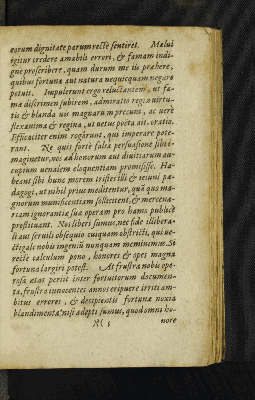 eorum dignitate parum recte sentiret. Malui
igitur credere amabili errori, & famam indi-
gne proscribere, quam durum me iis præbere,
quibus fortuna aut natura nequicquam negare
potuit. Impulerunt ergo reluctantem, ut fa-
mæ discrimen subirem, admiratio regiæ virtu-
tis & blanda vis magnarum precum, ac vere
flexanima & regina, ut vetus poeta ait, oratio.
Efficaciter enim rogarunt, qui imperare pote-
rant. Ne quis forte falsa persuasione sibi i-
maginetur, nos ad honorum aut divitiarum au-
cupium venalem eloquentiam promisisse. Ha-
beant sibi hunc morem isti & ieiuni pæ-
dagogi, ut nihil prius meditentur, quã quo ma-
gnorum munificentiam sollicitent, & mercena-
riam ignorantiæ suæ operam pro hamo publice
prostituant. Nos liberi sumus, nec fidé illibera-
li aut servili obsequio cuiquam obstricti, qui ve-
ctigale nobis ingenium nunquam meminimus. Si
recte calculum pono, honores & opes magna
fortuna largiri potest. At frustra nobis ope-
rosa ætas periit inter fortuitorum documen-
ta, frustra innocentes annos eripuere irriti am-
bitus errores, & decipientis fortunæ noxia
blandimenta: nisi adepti sumus, quod omni ho-
nore